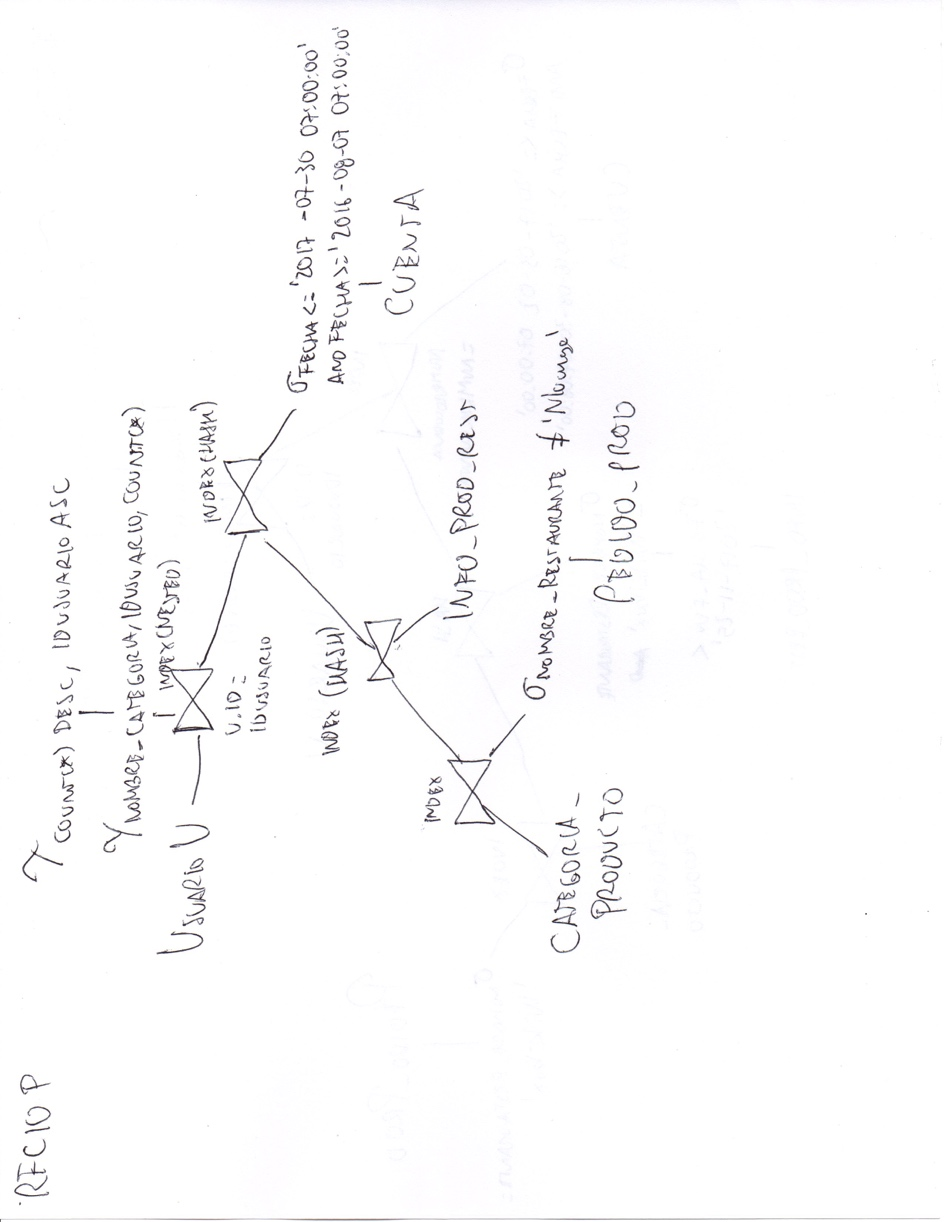 RFC10 P
τ COUNT(*) DESC, IDUSUARIO ASC
γ NOMBRE_CATEGORIA, IDUSUARIO, COUNT(*)
INDEX (NESTED)
USUARIO U
U.ID =
IDUSUARIO
INDEX (HASH)
σ FECHA <= '2017-07-30 07:00:00'
AND FECHA >= '2016-08-07 07:00:00'
CUENTA
INDEX (HASH)
INFO_PROD_REST
INDEX
σ NOMBRE_RESTAURANTE ≠
PEDIDO_PROD
CATEGORIA_
PRODUCTO